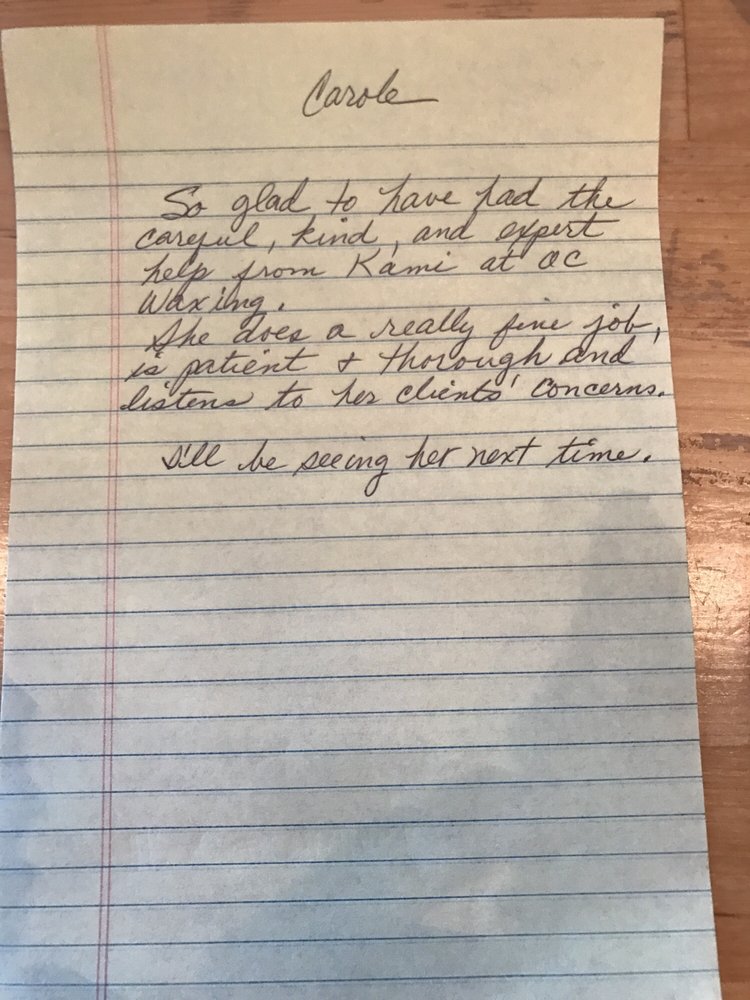 Carole
So glad to have had the
careful, kind, and expert
help from Kami at OC
Waxing.
She does a really fine job,
is patient & thorough and
listens to her clients' concerns.
I'll be seeing her next time.